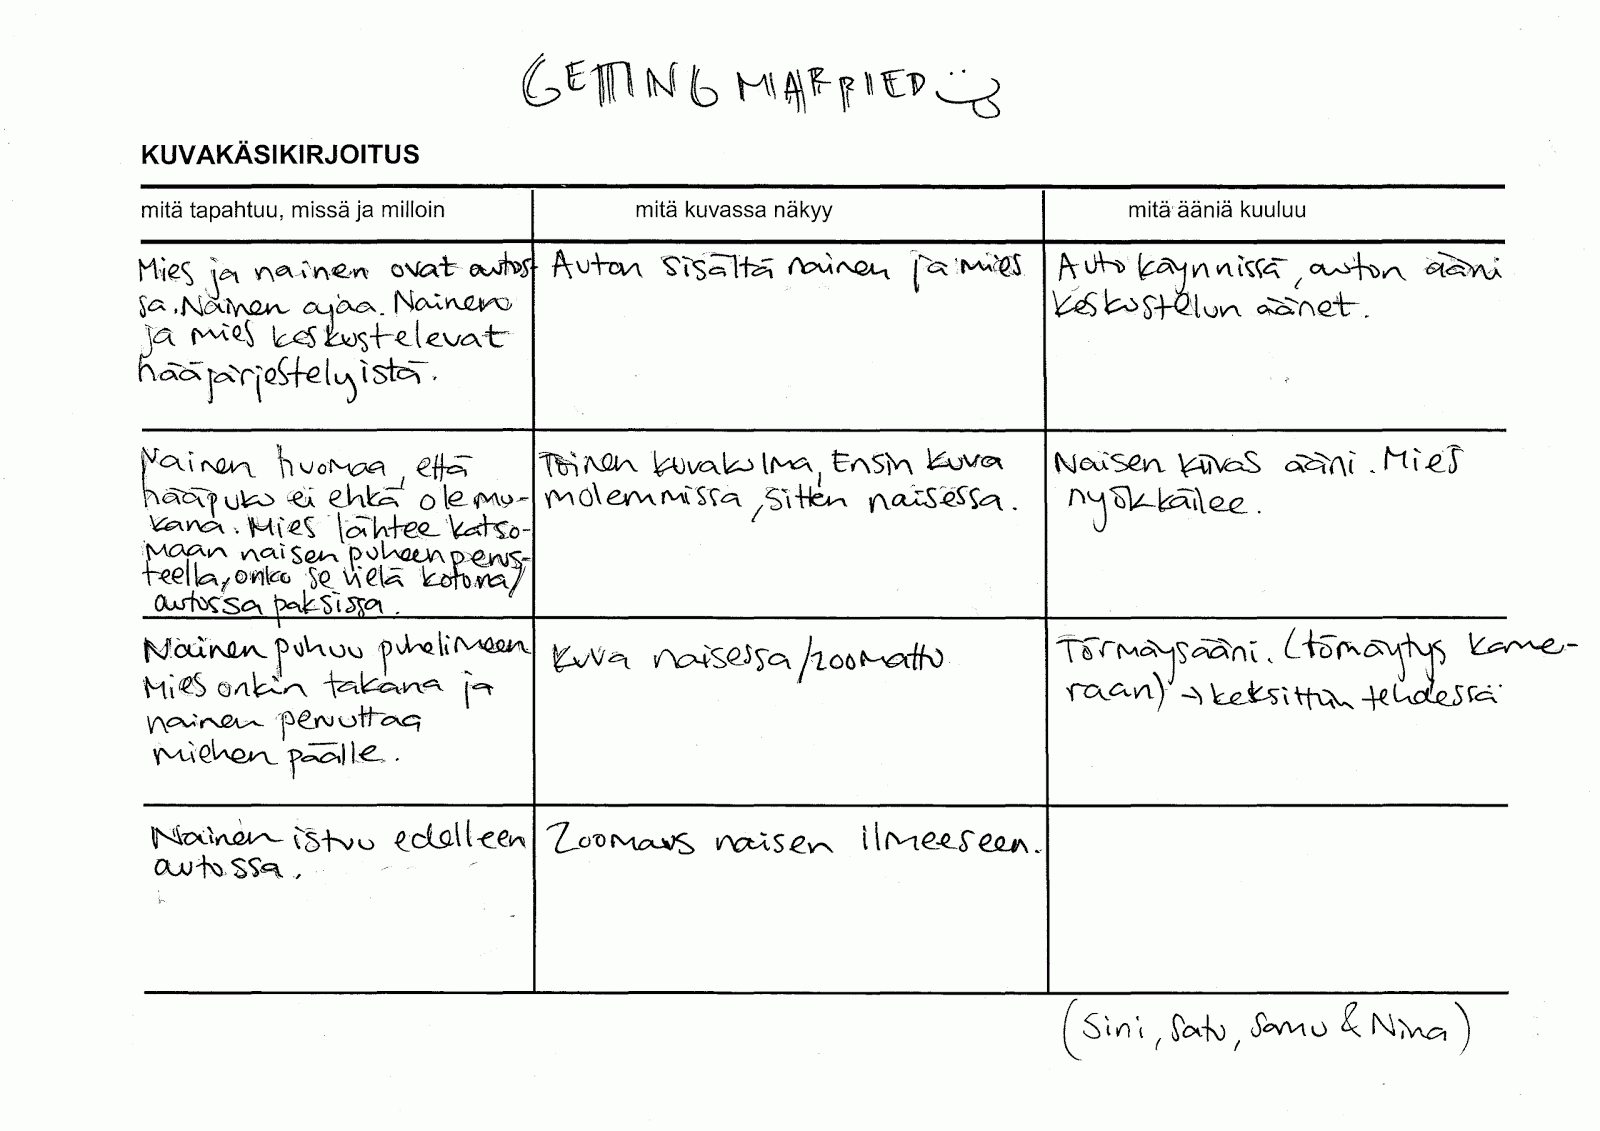 GETTING MARRIED
KUVAKÄSIKIRJOITUS
mitä tapahtuu, missä ja milloin
mitä kuvassa näkyy
mitä ääniä kuuluu
Mies ja nainen ovat autos-
sa. Nainen ajaa. Nainen
ja mies keskustelevat
hääjärjestelyistä.
Auton sisältä nainen ja mies
Auto käynnissä, auton ääni
keskustelun äänet.
Nainen huomaa, että
hääpuku ei ehkä ole mu-
kana. Mies lähtee katso-
maan naisen puheen perus-
teella, onko se vielä kotona/
autossa paksissa.
Toinen kuvakulma, Ensin kuva
molemmissa, sitten naisessa.
Naisen kiivas ääni. Mies
nyökkäilee.
Nainen puhuu puhelimeen
Mies onkin takana ja
nainen peruuttaa
miehen päälle.
Kuva naisessa/zoomattu
Törmäysääni. (tömäytys kame-
raan) → keksittiin tehdessä
Nainen istuu edelleen
autossa.
Zoomaus naisen ilmeeseen.
(Sini, Satu, Samu & Nina)